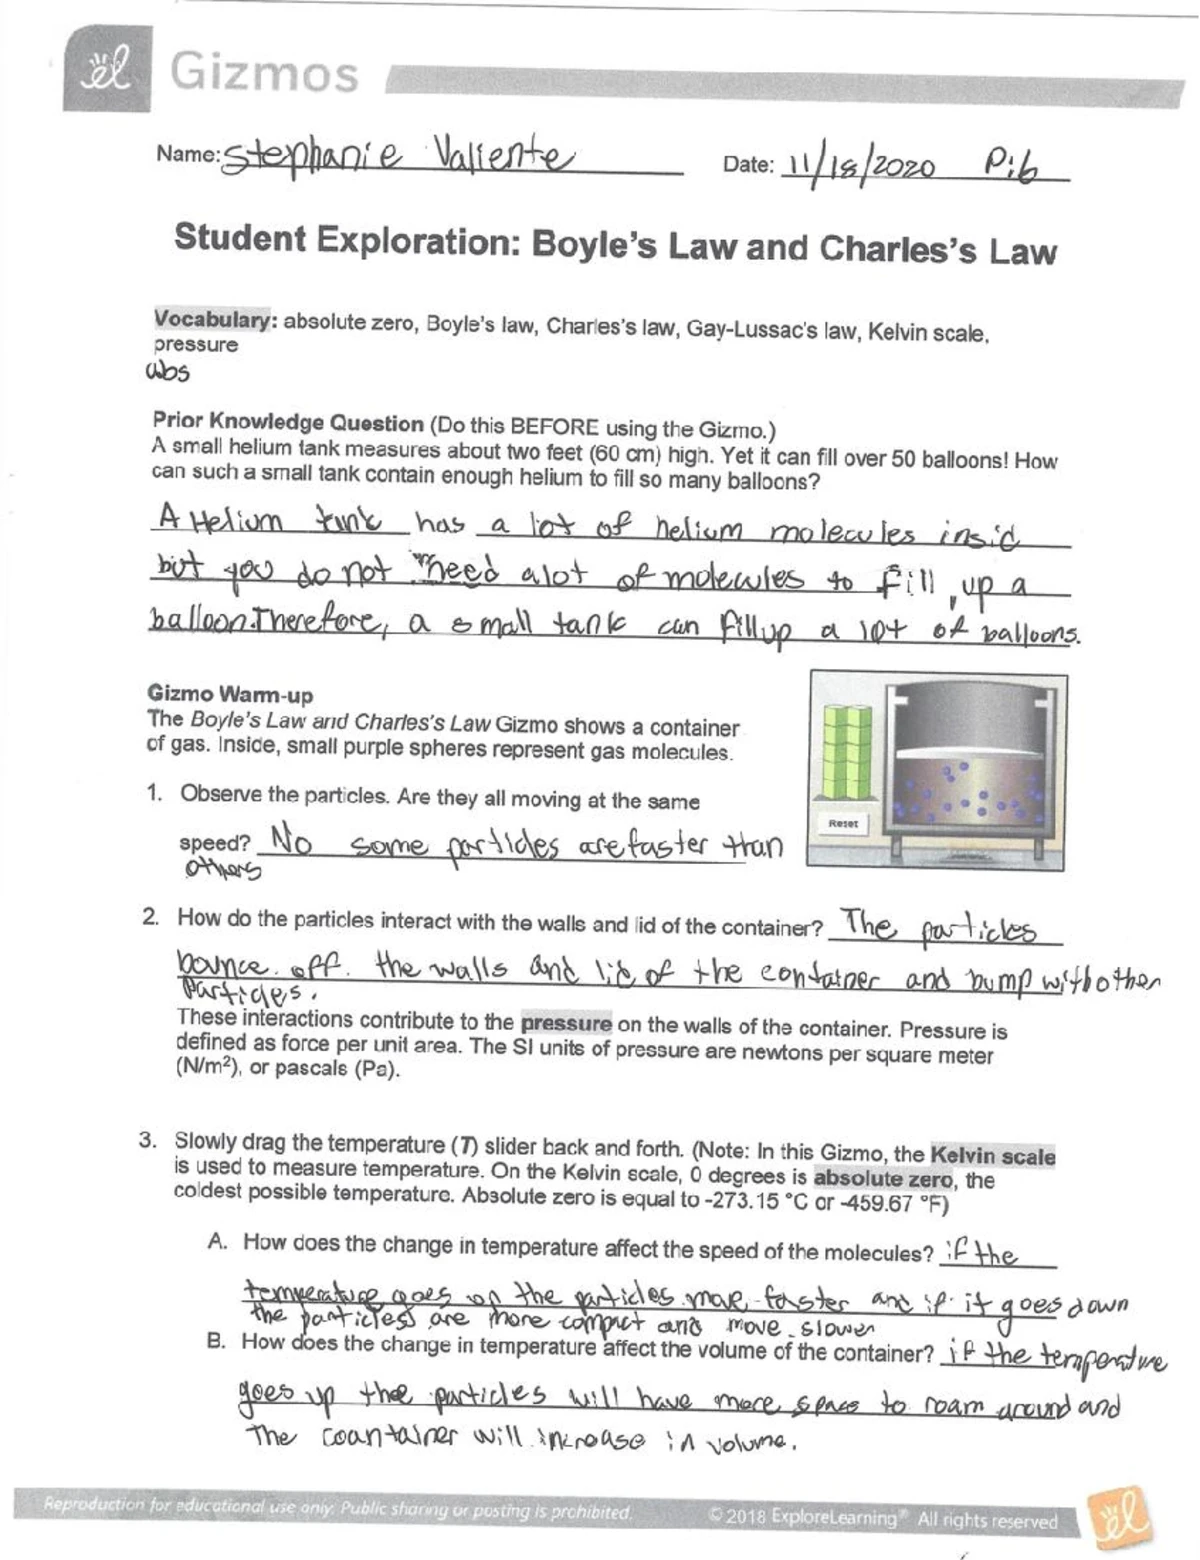 el Gizmos
Name: Stephanie Valiente Date: 11/18/2020 P:6
Student Exploration: Boyle's Law and Charles's Law
Vocabulary: absolute zero, Boyle's law, Charles's law, Gay-Lussac's law, Kelvin scale,
pressure
abs
Prior Knowledge Question (Do this BEFORE using the Gizmo.)
A small helium tank measures about two feet (60 cm) high. Yet it can fill over 50 balloons! How
can such a small tank contain enough helium to fill so many balloons?
A Helium tank has a lot of helium molecules insid
but you do not need alot of molecules to fill, up a
balloon. Therefore, a small tank can fill up a lot of balloons.
Gizmo Warm-up
The Boyle's Law and Charles's Law Gizmo shows a container
of gas. Inside, small purple spheres represent gas molecules.
1. Observe the particles. Are they all moving at the same
speed? No some particles are faster than
others
Reset
2. How do the particles interact with the walls and lid of the container? The particles
bounce off the walls and lid of the container and bump with other
particles.
These interactions contribute to the pressure on the walls of the container. Pressure is
defined as force per unit area. The SI units of pressure are newtons per square meter
(N/m²), or pascals (Pa).
3. Slowly drag the temperature (T) slider back and forth. (Note: In this Gizmo, the Kelvin scale
is used to measure temperature. On the Kelvin scale, 0 degrees is absolute zero, the
coldest possible temperature. Absolute zero is equal to -273.15 °C or -459.67 °F)
A. How does the change in temperature affect the speed of the molecules? if the
temperature goes up the particles move faster and if it goes down
the particless are more compact and move slower
B. How does the change in temperature affect the volume of the container? if the temperature
goes up the particles will have more space to roam around and
The coantainer will increase in volume.
Reproduction for educational use only. Public sharing or posting is prohibited. © 2018 ExploreLearning® All rights reserved
el